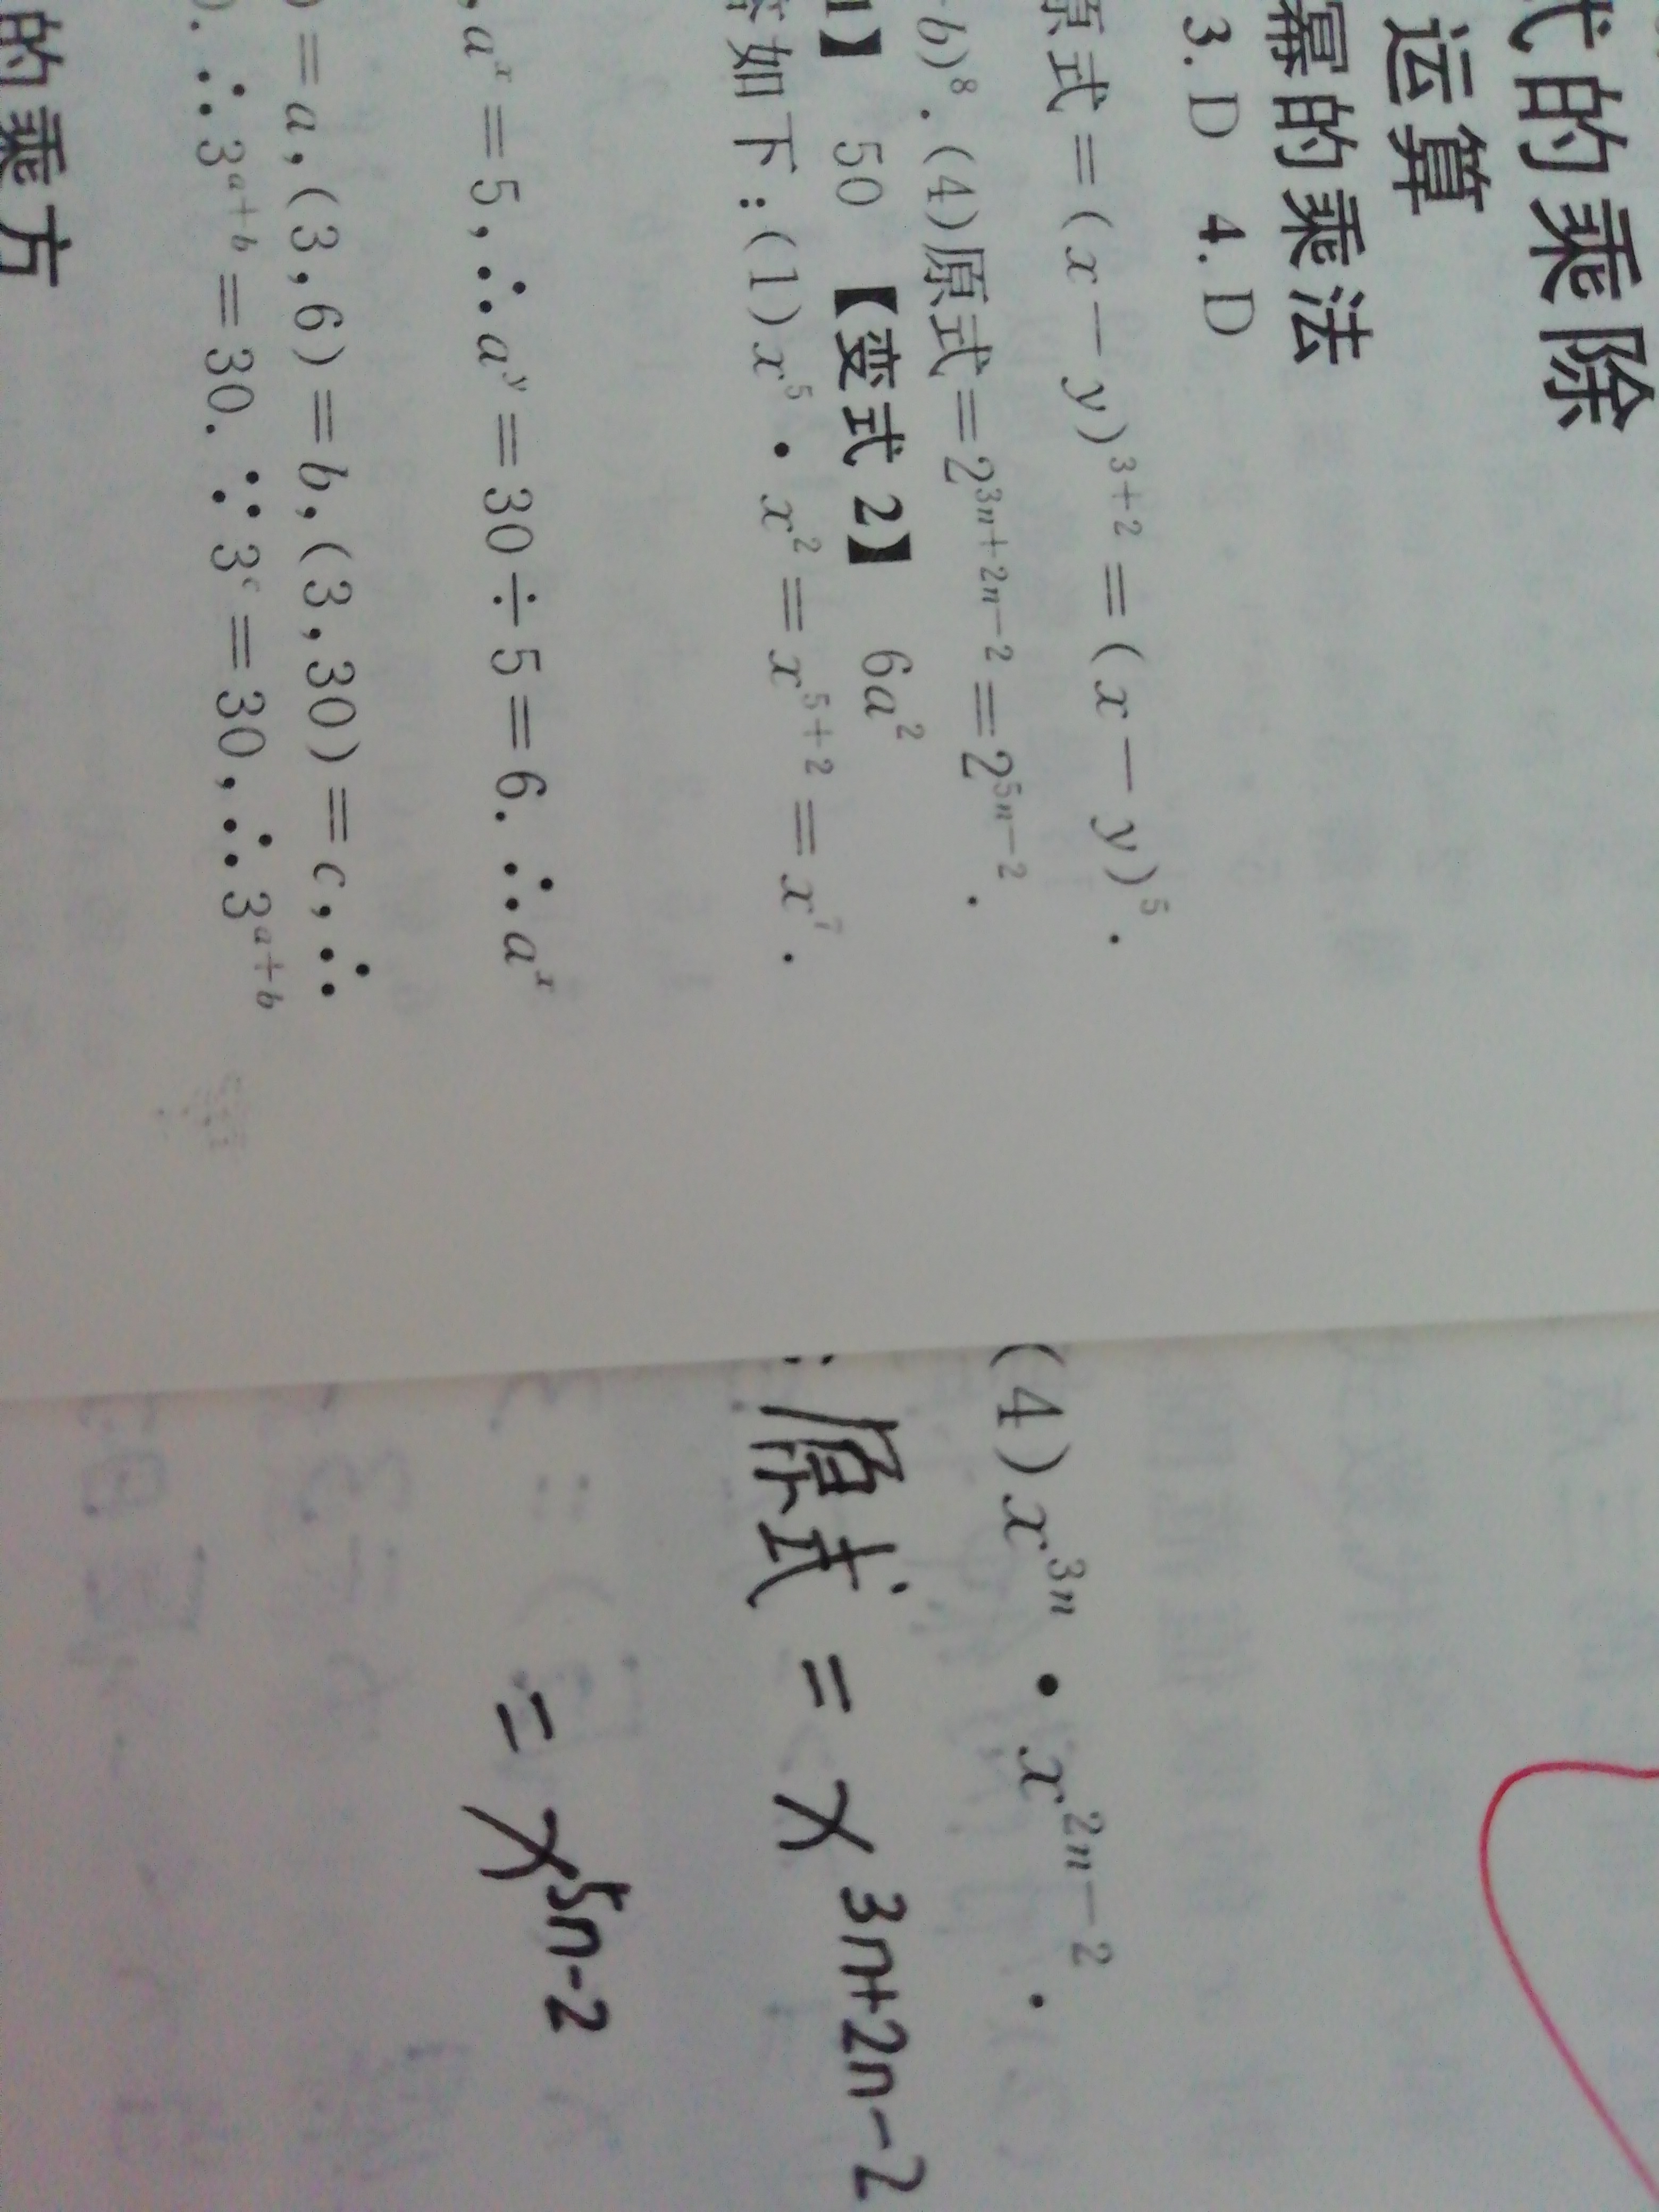 式的乘除
运算
幂的乘法
3. D 4. D
原式=(x-y)³⁺²=(x-y)⁵.
b)⁸.(4)原式=2³ⁿ⁺²ⁿ⁻²=2⁵ⁿ⁻².
1】 50 【变式 2】 6a²
答如下:(1)x⁵·x²=x⁵⁺²=x⁷.
,aˣ=5,∴aʸ=30÷5=6.∴aˣ
)=a,(3,6)=b,(3,30)=c,∴
).∴3ᵃ⁺ᵇ=30.∵3ᶜ=30,∴3ᵃ⁺ᵇ
的乘方
(4)x³ⁿ·x²ⁿ⁻².
:原式=x³ⁿ⁺²ⁿ⁻²
=x⁵ⁿ⁻²